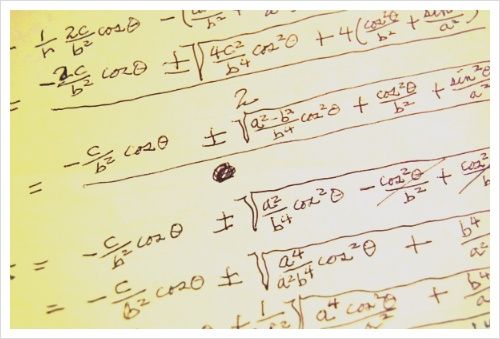 1/r 2c/b² cosθ − (
= −2c/b² cosθ ± √(4c²/b⁴ cos²θ + 4(cos²θ/b² + sin²θ/a²)
2
= −c/b² cosθ ± √(a²−b²/b⁴ cos²θ + cos²θ/b² + sin²θ/a²
= −c/b² cosθ ± √(a²/b⁴ cos²θ − cos²θ/b² + cos²
= −c/b² cosθ ± √(a⁴/a²b⁴ cos²θ + b⁴/a²
= cosθ ± 1/ √(a⁴ cos²θ + b⁴